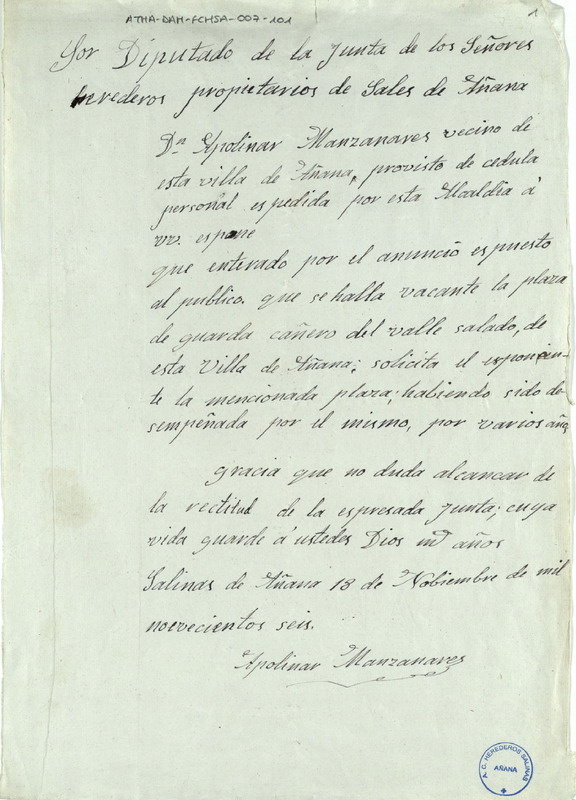 ATHA-DAH-FCHSA-007-101
1
Sor Diputado de la Junta de los Señores
herederos propietarios de Sales de Añana
Dn Apolinar Manzanares vecino de
esta villa de Añana, provisto de cedula
personal espedida por esta Alcaldia á
vv. espone
que enterado por el anuncio espuesto
al publico. que se halla vacante la plaza
de guarda cañero del valle salado, de
esta Villa de Añana; solicita el esponien-
te la mencionada plaza; habiendo sido de-
sempeñada por el mismo, por varios años
gracia que no duda alcanzar de
la rectitud de la espresada Junta; cuya
vida guarde á ustedes Dios ms años
Salinas de Añana 13 de Nobiembre de mil
noevecientos seis.
Apolinar Manzanares
A. C. HEREDEROS SALINAS
AÑANA